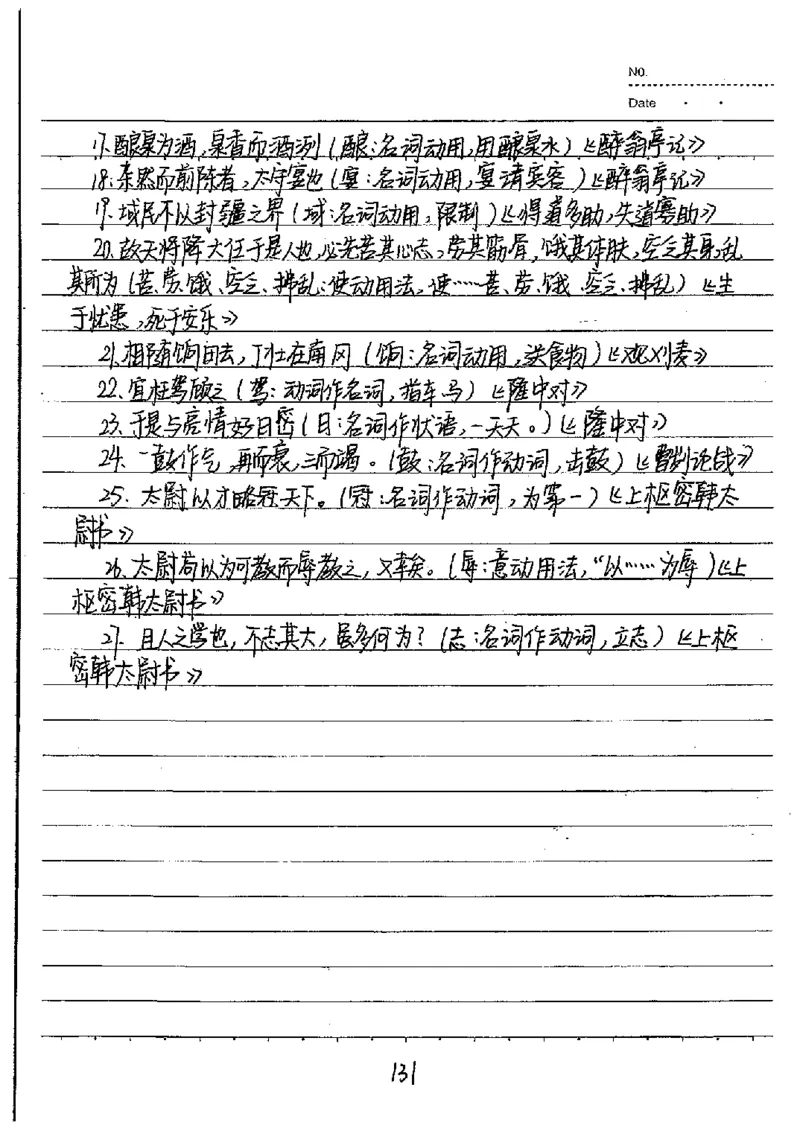 No.
Date
17. 酿泉为酒，泉香而酒洌（酿：名词动用，用酿泉水）《醉翁亭记》
18. 杂然而前陈者，太守宴也（宴：名词动用，宴请宾客）《醉翁亭记》
19. 域民不以封疆之界（域：名词动用，限制）《得道多助，失道寡助》
20. 故天将降大任于是人也，必先苦其心志，劳其筋骨，饿其体肤，空乏其身，乱
其所为（苦、劳、饿、空乏、拂乱：使动用法，使……苦、劳、饿、空乏、拂乱）《生
于忧患，死于安乐》
21. 相随饷田去，丁壮在南冈（饷：名词动用，送食物）《观刈麦》
22. 宜枉驾顾之（驾：动词作名词，指车马）《隆中对》
23. 于是与亮情好日密（日：名词作状语，一天天。）《隆中对》
24. 一鼓作气，再而衰，三而竭。（鼓：名词作动词，击鼓）《曹刿论战》
25. 太尉以才略冠天下。（冠：名词作动词，为第一）《上枢密韩太
尉书》
26. 太尉苟以为可教而辱教之，又幸矣。（辱：意动用法，“以……为辱）《上
枢密韩太尉书》
27. 且人之学也，不志其大，虽多何为？（志：名词作动词，立志）《上枢
密韩太尉书》
131